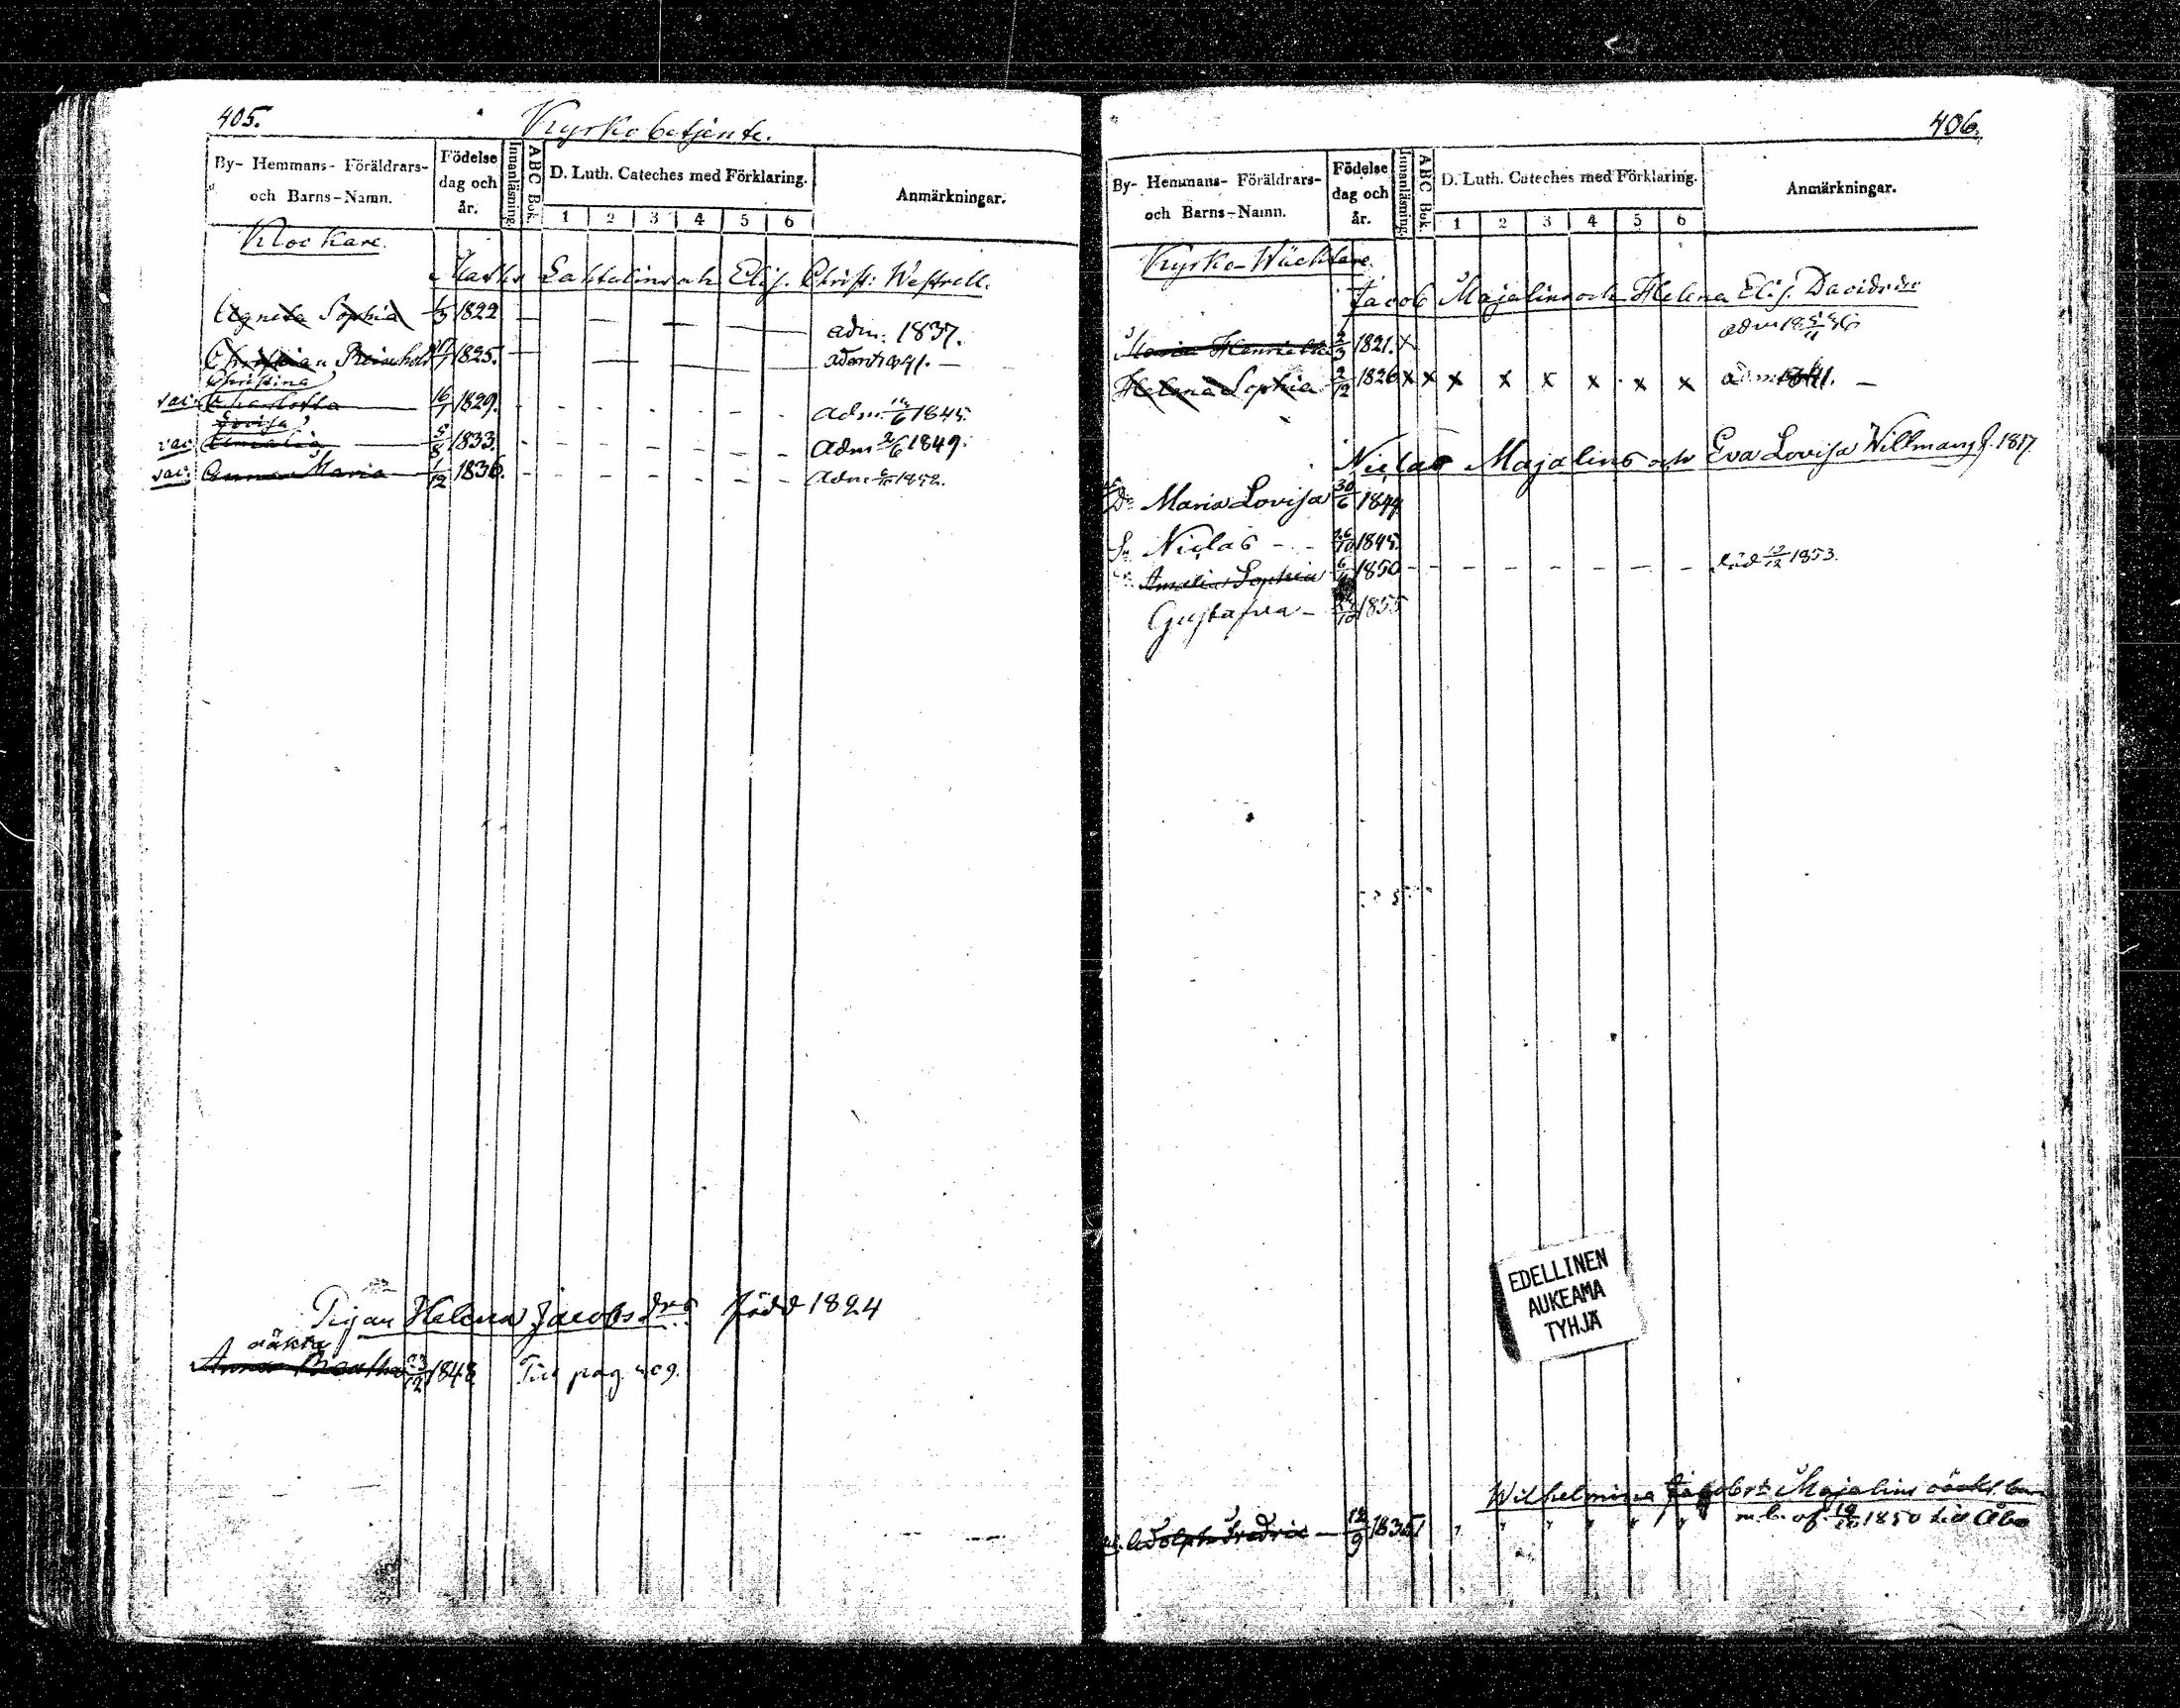 405.
Kyrkobetjente.
By- Hemmans- Föräldrars- och Barns-Namn.
Födelse dag och år.
Innanläsning.
ABC Bok.
D. Luth. Cateches med Förklaring.
1 2 3 4 5 6
Anmärkningar.
Klockare.
Maths Lahtelins och Elis. Christ: Westrell.
Agneta Sophia 1822 — — — — — adm: 1837.
Christian Reinhold 1825. — — — — admt 1841. —
Christina
vac: Charlotta 16/1 1829. - - - - - - - adm. 1845.
Lovisa
vac Amalia 5/8 1833. - - - - - - - Adm 2/6 1849.
vac: Anna Maria 1/12 1836. - - - - - - - Adm 1852.
Pigan Helena Jacobsdrs född 1824
oäkta
Anna 23/12 1848 Till pag. 409.
406.
By- Hemmans- Föräldrars- och Barns-Namn.
Födelse dag och år.
Innanläsning.
ABC Bok.
D. Luth. Cateches med Förklaring.
1 2 3 4 5 6
Anmärkningar.
Kyrko-Wäcktare.
Jacob Majalins och Helena Elis. Davidsdr
Maria Henrietta 2/3 1821. x adm
Helena Sophia 2/12 1826 x x x x x x x x adm 1841. —
Niclas Majalins och Eva Lovisa Willman f. 1817
Dr Maria Lovisa 30/6 1844
Sn Niclas - - 1845.
Amalia Sophia 1850 - - - - - - - död 1853.
Gustafva - 1855
EDELLINEN
AUKEAMA
TYHJÄ
Wilhelmina Majalins
Adolph Fredric — 12/9 1835 " " " " " " m. b. af 1850 till Åbo